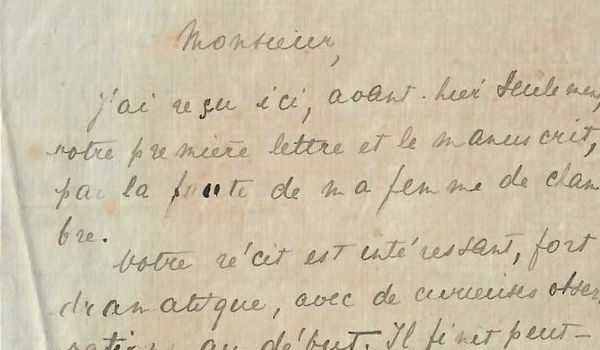 Monsieur,
j'ai reçu ici, avant-hier seulement,
votre première lettre et le manuscrit,
par la faute de ma femme de cham
bre.
Votre récit est intéressant, fort
dramatique, avec de curieuses obser
vations au début. Il finit peut-